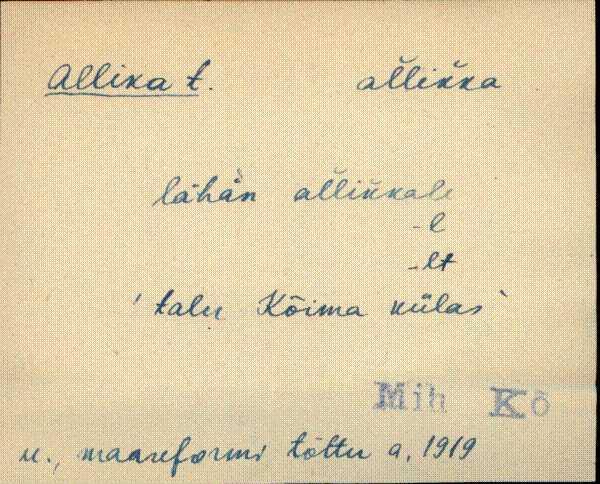 Allika t. aĺĺikka
lähän aĺĺikkale
-l
-lt
'talu Kõima külas'
Mih Kõ
u., maareformi tõttu a. 1919